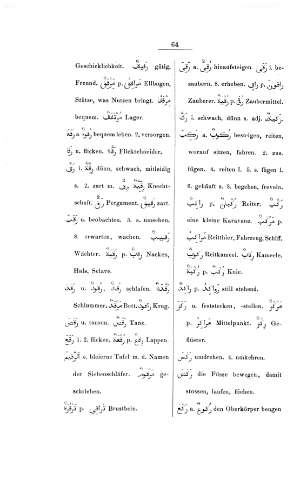 64
Geschicklichkeit. رفيق gütig.
Freund. مرفق p. مرافق Ellbogen,
Stütze, was Nutzen bringt. مرفق
bequem. مرتفق Lager
رفه u bequem leben. 2. versorgen.
رفا a. flicken. رفاء Flickschneider.
رق i. رقة dünn, schwach, mitleidig
s. 2. zart m. رق Knecht-
schaft. رق Pergament. رقيق zart.
رقب u. beobachten. A. s. umsehen.
8. erwarten, wachen. رقيب
Wächter. رقبة p. رقاب Nacken,
Hals, Sclave.
رقد u. رقود, رقاد schlafen. رقدة
Schlummer. مرقد Bett. Krug.
رقص u. tanzen. رقص Tanz.
رقع i. 2. flicken. رقعة p. رقاع Lappen.
الرقيم e. bleierne Tafel m. d. Namen
der Siebenschläfer. مرقوم ge-
schrieben.
ترقوة p. تراقي Brustbein.
رقي a. hinaufsteigen. رقى i. be-
zaubern. 8. erheben. راقي p. راقون
Zauberer. رقية p. رقى Zaubermittel.
رك i. schwach, dünn s. adj. ركيك.
ركب a. ركوب besteigen, reiten,
worauf sitzen, fahren. 2. zus.
fügen. 4. reiten l. 5. s. fügen l.
6. gehäuft s. 8. begehen, freveln.
راكب p. ركبان Reiter. ركب
eine kleine Karavane. مركب p.
مراكب Reitthier, Fahrzeug, Schiff.
ركوب Reitkamel. ركاب Kameele.
ركبة p. ركب Knie.
ركد u. ركود still stehend.
ركز u. feststecken, -stellen. مركز
p. مراكز Mittelpunkt. ركز Ge-
flüster.
ركس umdrehen. 4. umkehren.
ركض die Füsse bewegen, damit
stossen, laufen, fliehen.
ركع a. ركوع den Oberkörper beugen